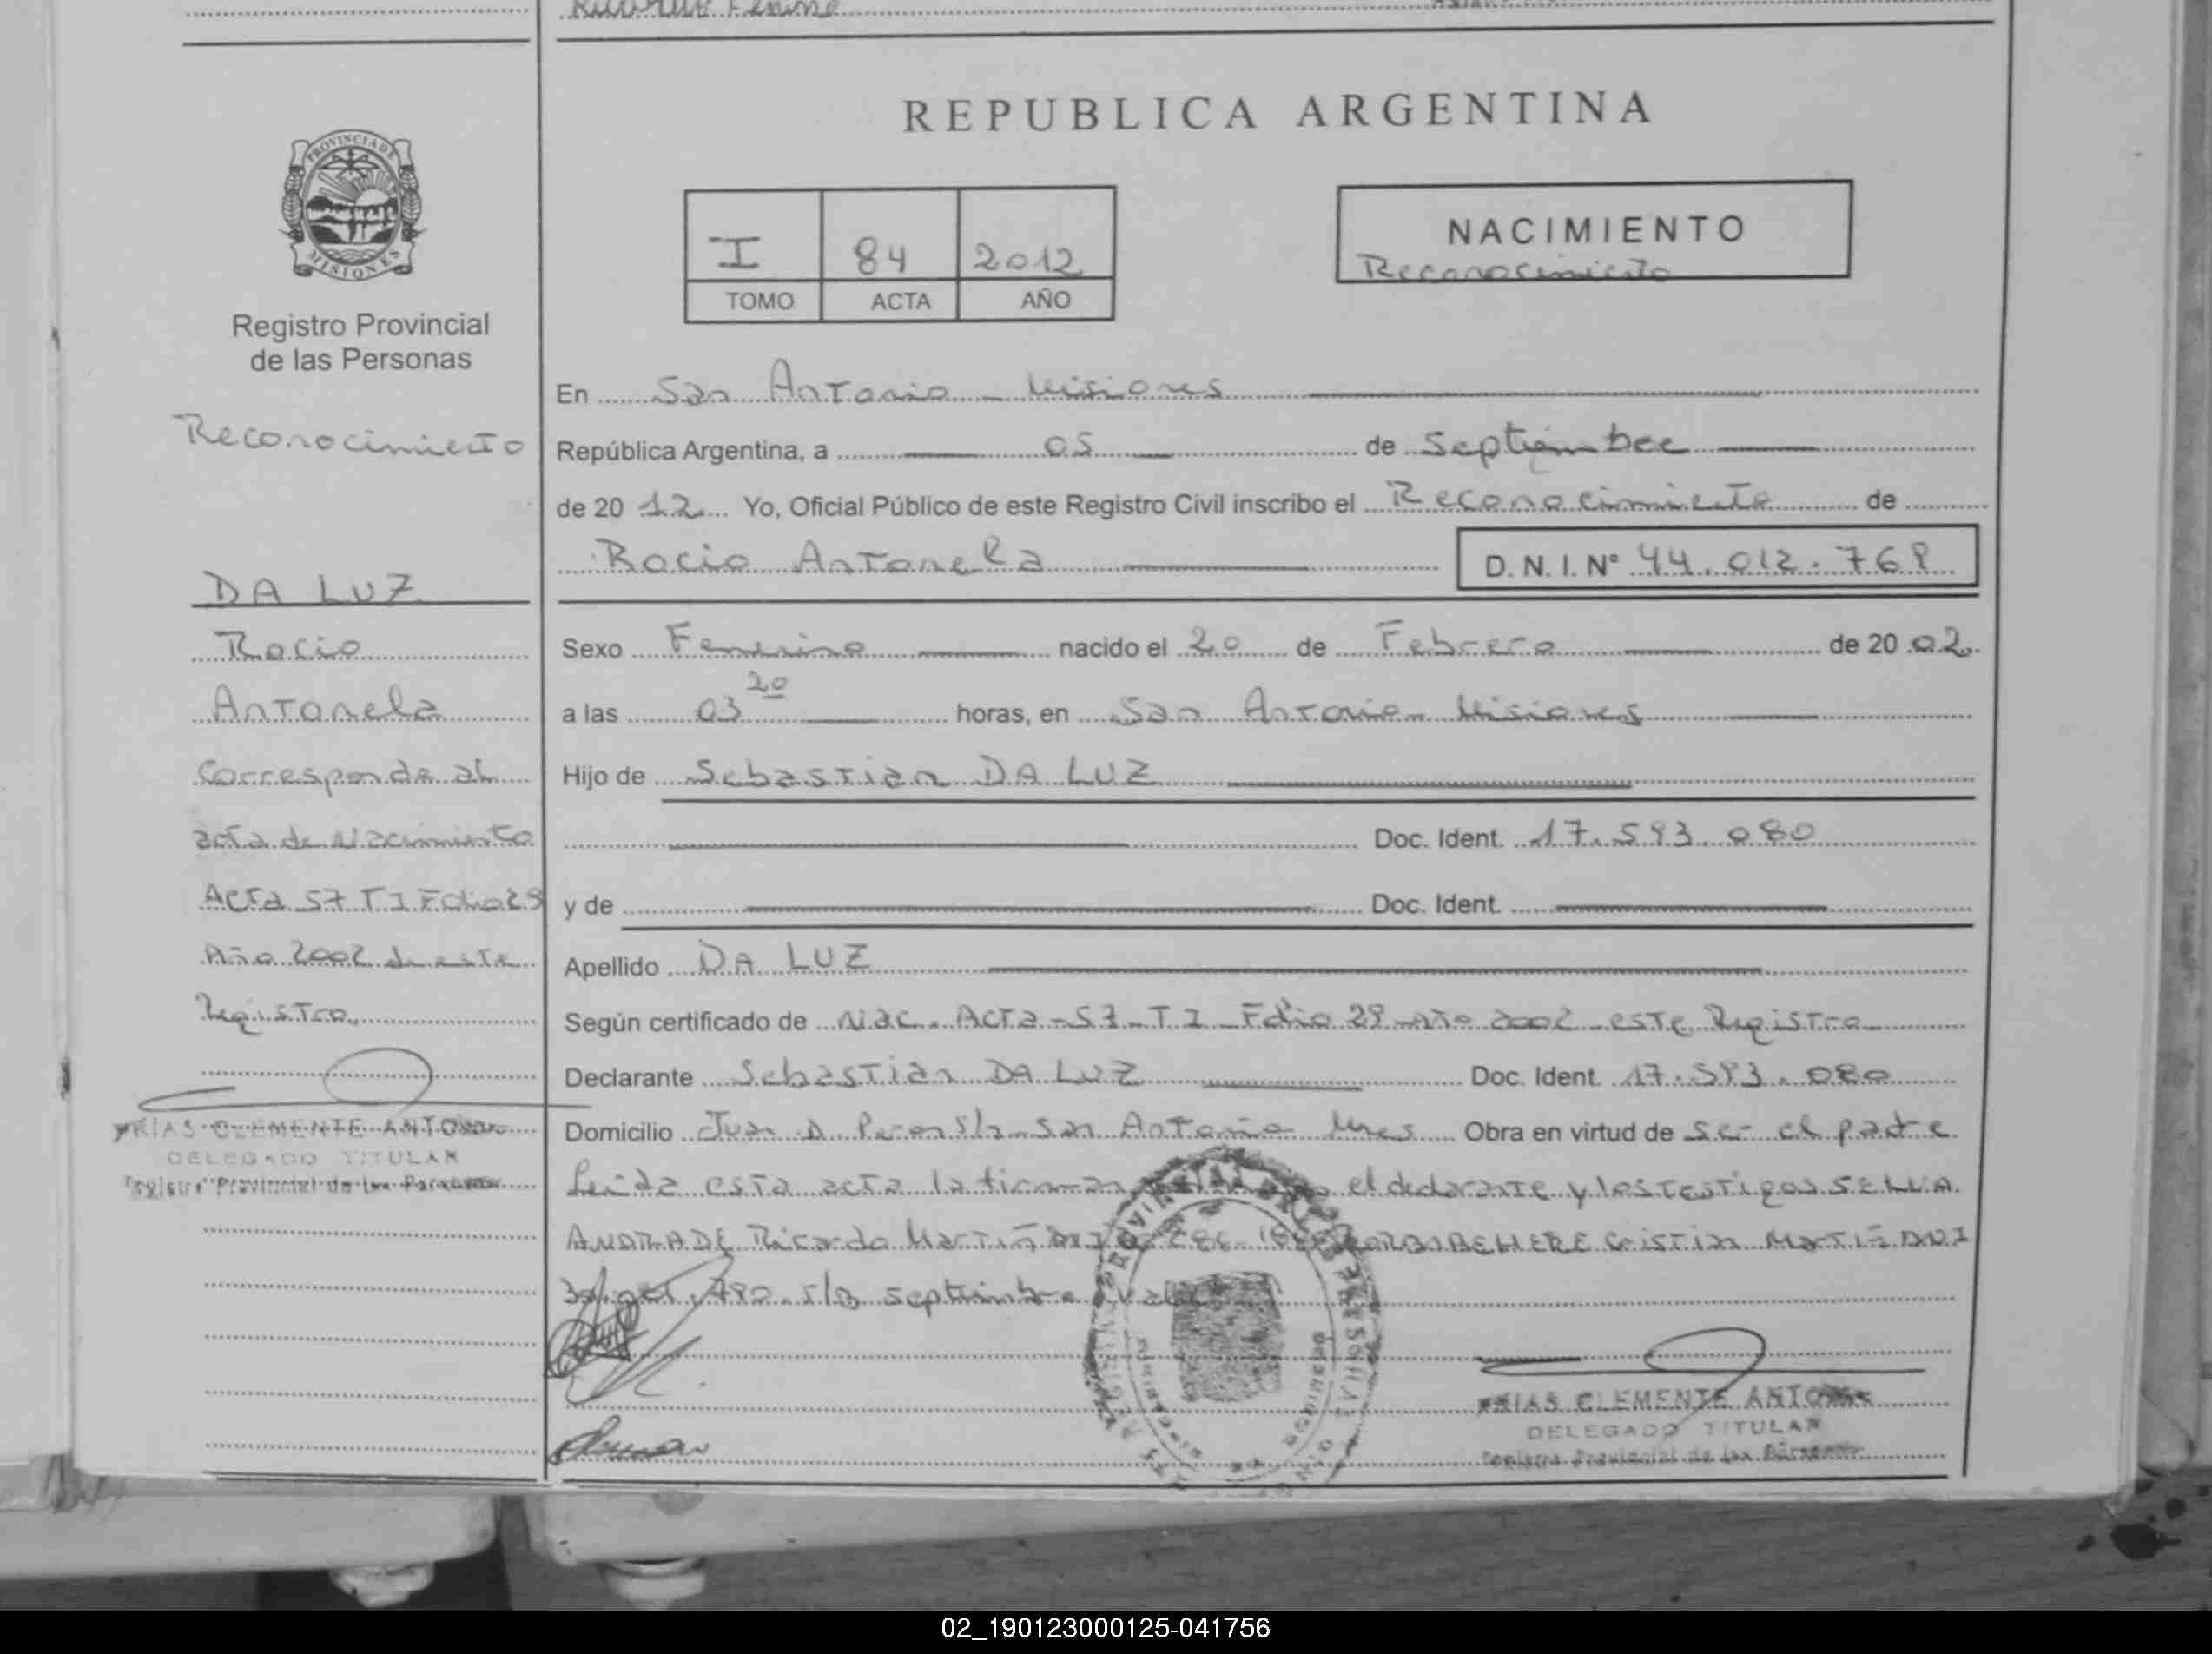 REPUBLICA ARGENTINA
PROVINCIA DE
MISIONES
Registro Provincial
de las Personas
Reconocimiento
DA LUZ
Rocio
Antonela
Corresponde al
acta de Nacimiento
Acta 57 T I Folio 29
Año 2002 de este
Registro
FRIAS CLEMENTE
DELEGADO TITULAR
Registro Provincial de las Personas
I 84 2012
TOMO ACTA AÑO
NACIMIENTO
Reconocimiento
En San Antonio - Misiones
República Argentina, a 05 de Septiembre
de 20 12 Yo, Oficial Público de este Registro Civil inscribo el Reconocimiento de
Rocio Antonela D. N. I. Nº 44.012.768
Sexo Femenino nacido el 20 de Febrero de 20 02
a las 03 20 horas, en San Antonio - Misiones
Hijo de Sebastian DA LUZ
Doc. Ident. 17.593.080
y de Doc. Ident.
Apellido DA LUZ
Según certificado de Nac. Acta - 57 - T I - Folio 29 - Año 2002 - este Registro
Declarante Sebastian DA LUZ Doc. Ident. 17.593.080
Domicilio Juan D. Peron s/n - San Antonio Mnes Obra en virtud de ser el padre
Leida esta acta la firman el declarante y los testigos SELLA
ANDRADE Ricardo Martin Cristian Martin DNI
790. s/b septiembre Vale
FRIAS CLEMENTE
DELEGADO TITULAR
Registro Provincial de las Personas
02_190123000125-041756